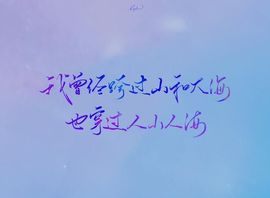 我曾经跨过山和大海
也穿过人山人海